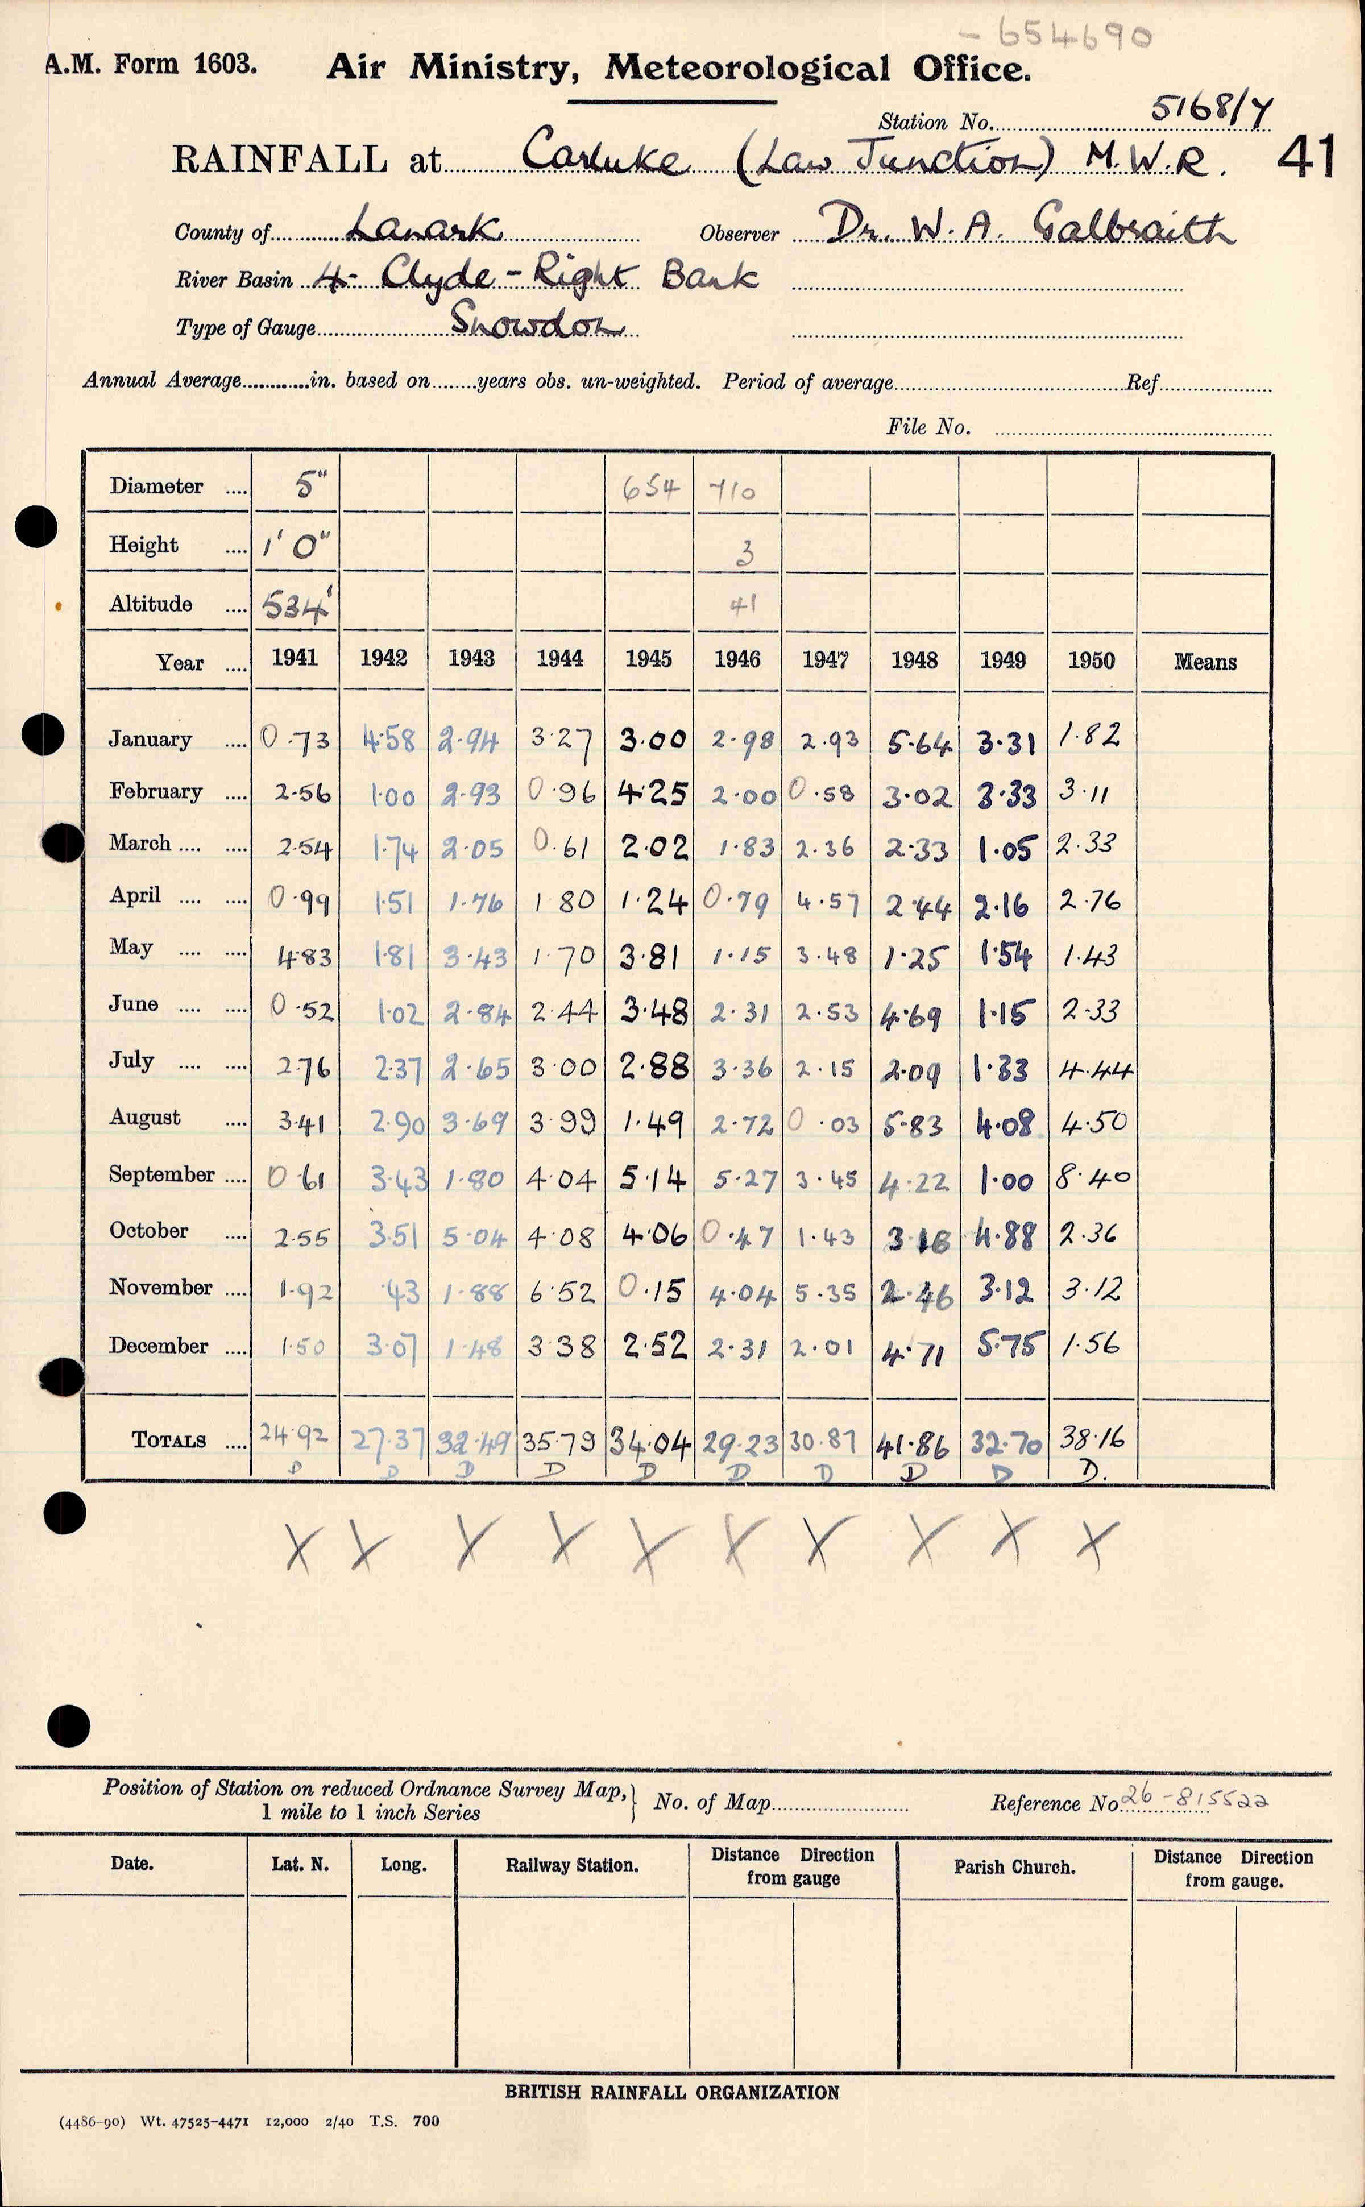 - 654690
A.M. Form 1603. Air Ministry, Meteorological Office.
Station No. 5168/7
RAINFALL at Carluke (Law Junction) M.W.R. 41
County of Lanark Observer Dr. W. A. Galbraith
River Basin 4- Clyde - Right Bank
Type of Gauge Snowdon
Annual Average............in. based on........years obs. un-weighted. Period of average Ref.
File No.
Diameter .... 5" 654 710
Height .... 1' 0" 3
Altitude .... 534' 41
Year .... 1941 1942 1943 1944 1945 1946 1947 1948 1949 1950 Means
January .... 0.73 4.58 2.94 3.27 3.00 2.98 2.93 5.64 3.31 1.82
February .... 2.56 1.00 2.93 0.96 4.25 2.00 0.58 3.02 3.33 3.11
March .... .... 2.54 1.74 2.05 0.61 2.02 1.83 2.36 2.33 1.05 2.33
April .... .... 0.99 1.51 1.76 1.80 1.24 0.79 4.57 2.44 2.16 2.76
May .... .... 4.83 1.81 3.43 1.70 3.81 1.15 3.48 1.25 1.54 1.43
June .... .... 0.52 1.02 2.84 2.44 3.48 2.31 2.53 4.69 1.15 2.33
July .... .... 2.76 2.37 2.65 3.00 2.88 3.36 2.15 2.09 1.33 4.44
August .... 3.41 2.90 3.69 3.99 1.49 2.72 0.03 5.83 4.08 4.50
September .... 0.61 3.43 1.80 4.04 5.14 5.27 3.45 4.22 1.00 8.40
October .... 2.55 3.51 5.04 4.08 4.06 0.47 1.43 3.18 4.88 2.36
November .... 1.92 .43 1.88 6.52 0.15 4.04 5.35 2.46 3.12 3.12
December .... 1.50 3.07 1.48 3.38 2.52 2.31 2.01 4.71 5.75 1.56
TOTALS .... 24.92 27.37 32.49 35.79 34.04 29.23 30.87 41.86 32.70 38.16
D D D D D D D D D D.
X X X X X X X X X X
Position of Station on reduced Ordnance Survey Map,
1 mile to 1 inch Series } No. of Map Reference No 26-815522
Date. Lat. N. Long. Railway Station. Distance Direction from gauge Parish Church. Distance Direction from gauge.
BRITISH RAINFALL ORGANIZATION
(4486-90) Wt. 47525-4471 12,000 2/40 T.S. 700